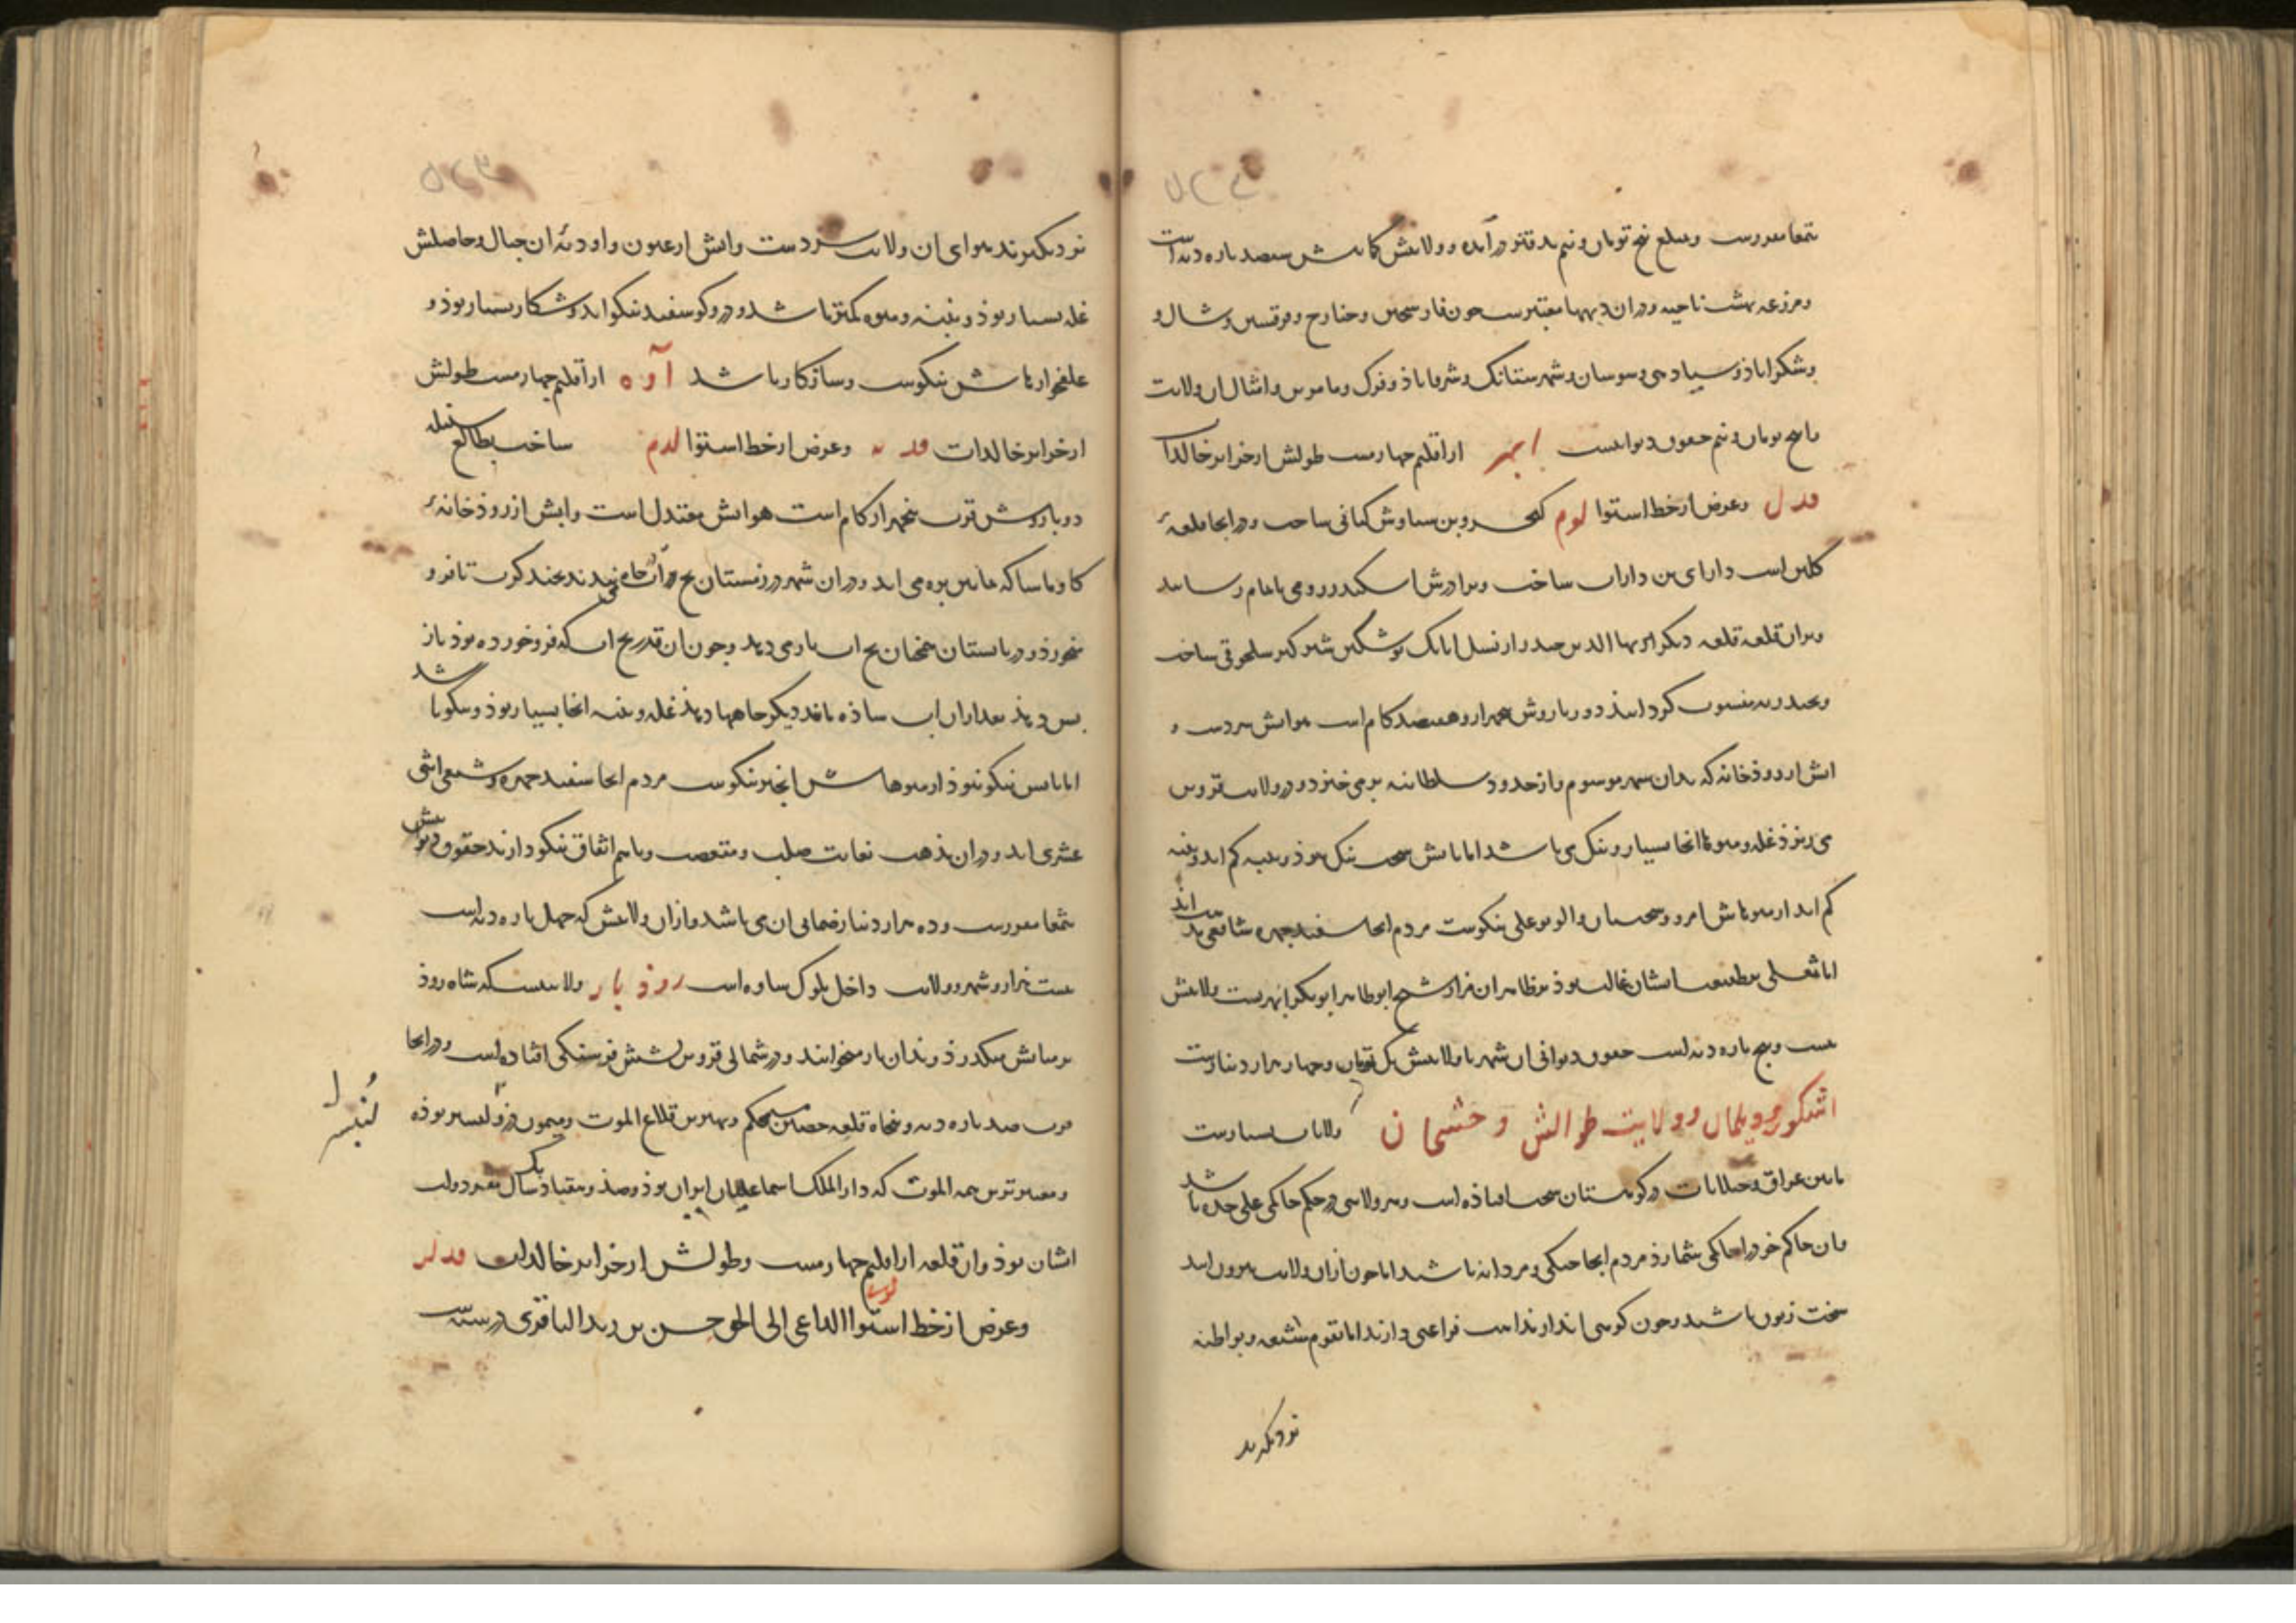 تمغا مقررست و مبلغ پنج تومان و نیم بدفتر درآمده و ولایتش کمابیش سیصد پاره دیه است
و مزرعه هشت ناحیه و در آن دیهها معتبرست چون فارسجین و و قرقسین و شال و
و شکراباذ و سیادهی و سوسان و شهرستانک و شرفاباذ و فرک و ماموس و امثال آن ولایت
را پنج تومان و نیم حقوق دیوانیست ابهر از اقلیم چهارمست طولش از خزایر خالدات
فدل و عرض از خط استوا لوم کیخسرو بن سیاوش کیانی ساخت و در آنجا قلعهٔ
گلین است دارای بن داراب ساخت و برادرش اسکندر رومی باتمام رسانید
و بران قلعه قلعه دیگر بهاالدین حیدر از نسل اتابک نوشتکین شیرکیر سلجوقی ساخت
و بحیدریه منسوب کردانیذ دور باروش پنجهزار و هفتصد کام است هوایش سردست و
آبش از روذخانه که بدان شهر موسوم و از حدود سلطانیه برمی خیزد و در ولایت قزوین
می ریزذ غله و میوه آنجا بسیار و نیک می باشد اما نانش سخت نیک نبوذ و پنبه کم آید
کم آید از میوهاش امرود سجستانی و آلو بوعلی نیکوست مردم آنجا سفید چهره شافعی مذهب اند
اما بر طبیعت ایشان غالب بوذ بر ظاهر آن مزار شیخ ابوطاهر ابوبکر ابهریست ولایتش
بیست و پنج پاره دیه است حقوق دیوانی آن شهر با ولایتش یک تومان و چهار هزار دینارست
اشکور و دیلمان و ولایت طوالش و خشجان ولایات بسیارست
مابین عراق و جیلانات در کوهستان سخت افتاذه است و هر ولایتی در حکم حاکمی علی حده باشد
و آن حاکم خود را حاکمی شمارذ مردم آنجا جنکی و مردانه باشند اما چون از آن ولایت بیرون آیند
سخت زبون باشند و چون کوهی اند از مذاهب فراغتی دارند اما بقوم شیعه و بواطنه
نزدیکترند
نزدیکترند هوای آن ولایت سردست و آبش از عیون و اودیهٔ آن جبال و حاصلش
غله بسیار بوذ و پنبه و میوه کمتر باشد و درو کوسفند نیکو آید و شکار بسیار بوذ و
علفخوارهاش نیکوست و سازکار باشد آوه از اقلیم چهارمست طولش
از خزایر خالدات فد یه و عرض از خط استوا لدم ساخت بطالع سنبله
دور باروش قرب پنجهزار کام است هوایش معتدل است و آبش از روذخانهٔ
کاوماسا که مابین بره می آید و در آن شهر در زمستان یخ در آن چاه می بندند بچند کرت تا فرو
میخورذ و در تابستان همچنان یخ آب باز می دهد و چون آن قدر یخ آب که فرو خورده بوذ باز
پس دهذ بعد از آن آب ساذه مانند دیکر چاهها دهذ غله و پنبه آنجا بسیار بوذ و نیکو باشد
اما نانش نیکو نبوذ از میوهاش انجیر نیکوست مردم آنجا سفید چهره و شیعی اثنی
عشری اند و در آن مذهب بغایت صلب و متعصب و باهم اتفاق نیکو دارند حقوق دیوانیش
بتمغا مقررست و ده هزار دینار ضمانی آن می باشد و از آن ولایتش که چهل پاره دیه است
بیست هزار و شهر و ولایت داخل بلوک ساوه است روذبار ولایتیست که شاه روذ
بر میانش میکذرذ و بدان باز میخوانند و در شمالی قزوین شش فرسنکی افتاده است و در آنجا
قرب صد پاره دیه و پنجاه قلعه حصین محکم و بهترین قلاع الموت و میمون دز و لنبسر بوذه
لنبسر
و معتبرترین همه الموت که دارالملک اسماعیلیان ایران بوذ و صد و هفتاد و یک سال مقر دولت
ایشان بوذ و آن قلعه از اقلیم چهارمست و طولش از خزایر خالدات فدلر
و عرض از خط استوا الداعی الی الحق حسن بن زید الباقری در سنه ست